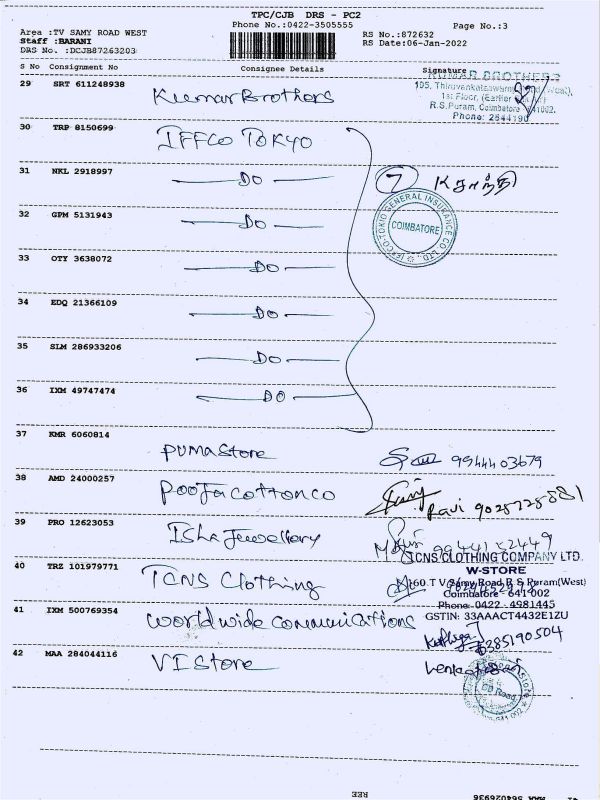 TPC/CJB DRS - PC2
Phone No.:0422-3505555
Page No.:3
Area :TV SAMY ROAD WEST
Staff :BARANI
DRS No. :DCJB87263203
RS No.:872632
RS Date:06-Jan-2022
S No Consignment No Consignee Details Signature
KUMAR BROTHERS
29 SRT 611248938 Kumar Brothers
1st Floor, (Earlier
R.S.Puram, Coimbatore 641002.
Phone: 2544190
30 TRP 8150699 IFFCO TOKYO
31 NKL 2918997 DO 7 K சாந்தி
IFFCO-TOKIO GENERAL INSURANCE CO LTD.
COIMBATORE
32 GPM 5131943 DO
33 OTY 3638072 DO
34 EDQ 21366109 DO
35 SLM 286933206 DO
36 IXM 49747474 DO
37 KMR 6060814 Puma Store 9944403679
38 AMD 24000257 Pooja Cotton co
Ravi 9025725881
39 PRO 12623053 Isha Jewellery
TCNS CLOTHING COMPANY LTD.
W-STORE
40 TRZ 101979771 TCNS Clothing
160.T V Samy Road R S Puram(West)
Coimbatore - 641 002
Phone: 0422 - 4981445
GSTIN: 33AAACT4432E1ZU
41 IXM 500769354 World wide communications
6385190504
42 MAA 284044116 VI Store
REE
MAA 564026936